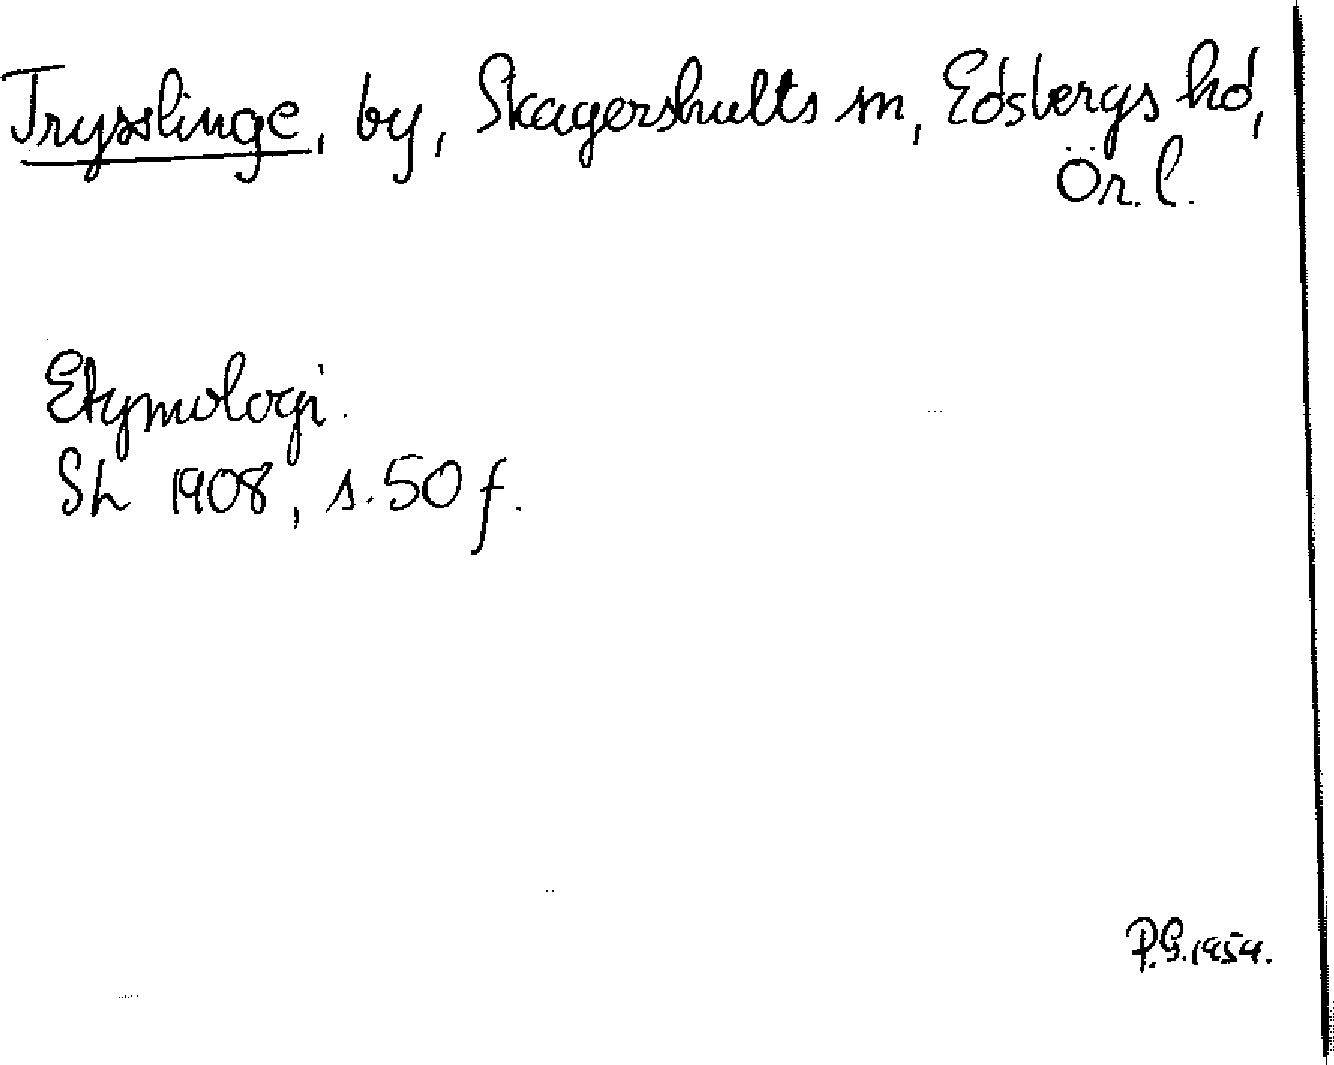 Trysslinge, by, Skagershults sn, Edsbergs hd,
Ör. l.
Etymologi.
Sh 1908, s. 50 f.
P.G. 1954.